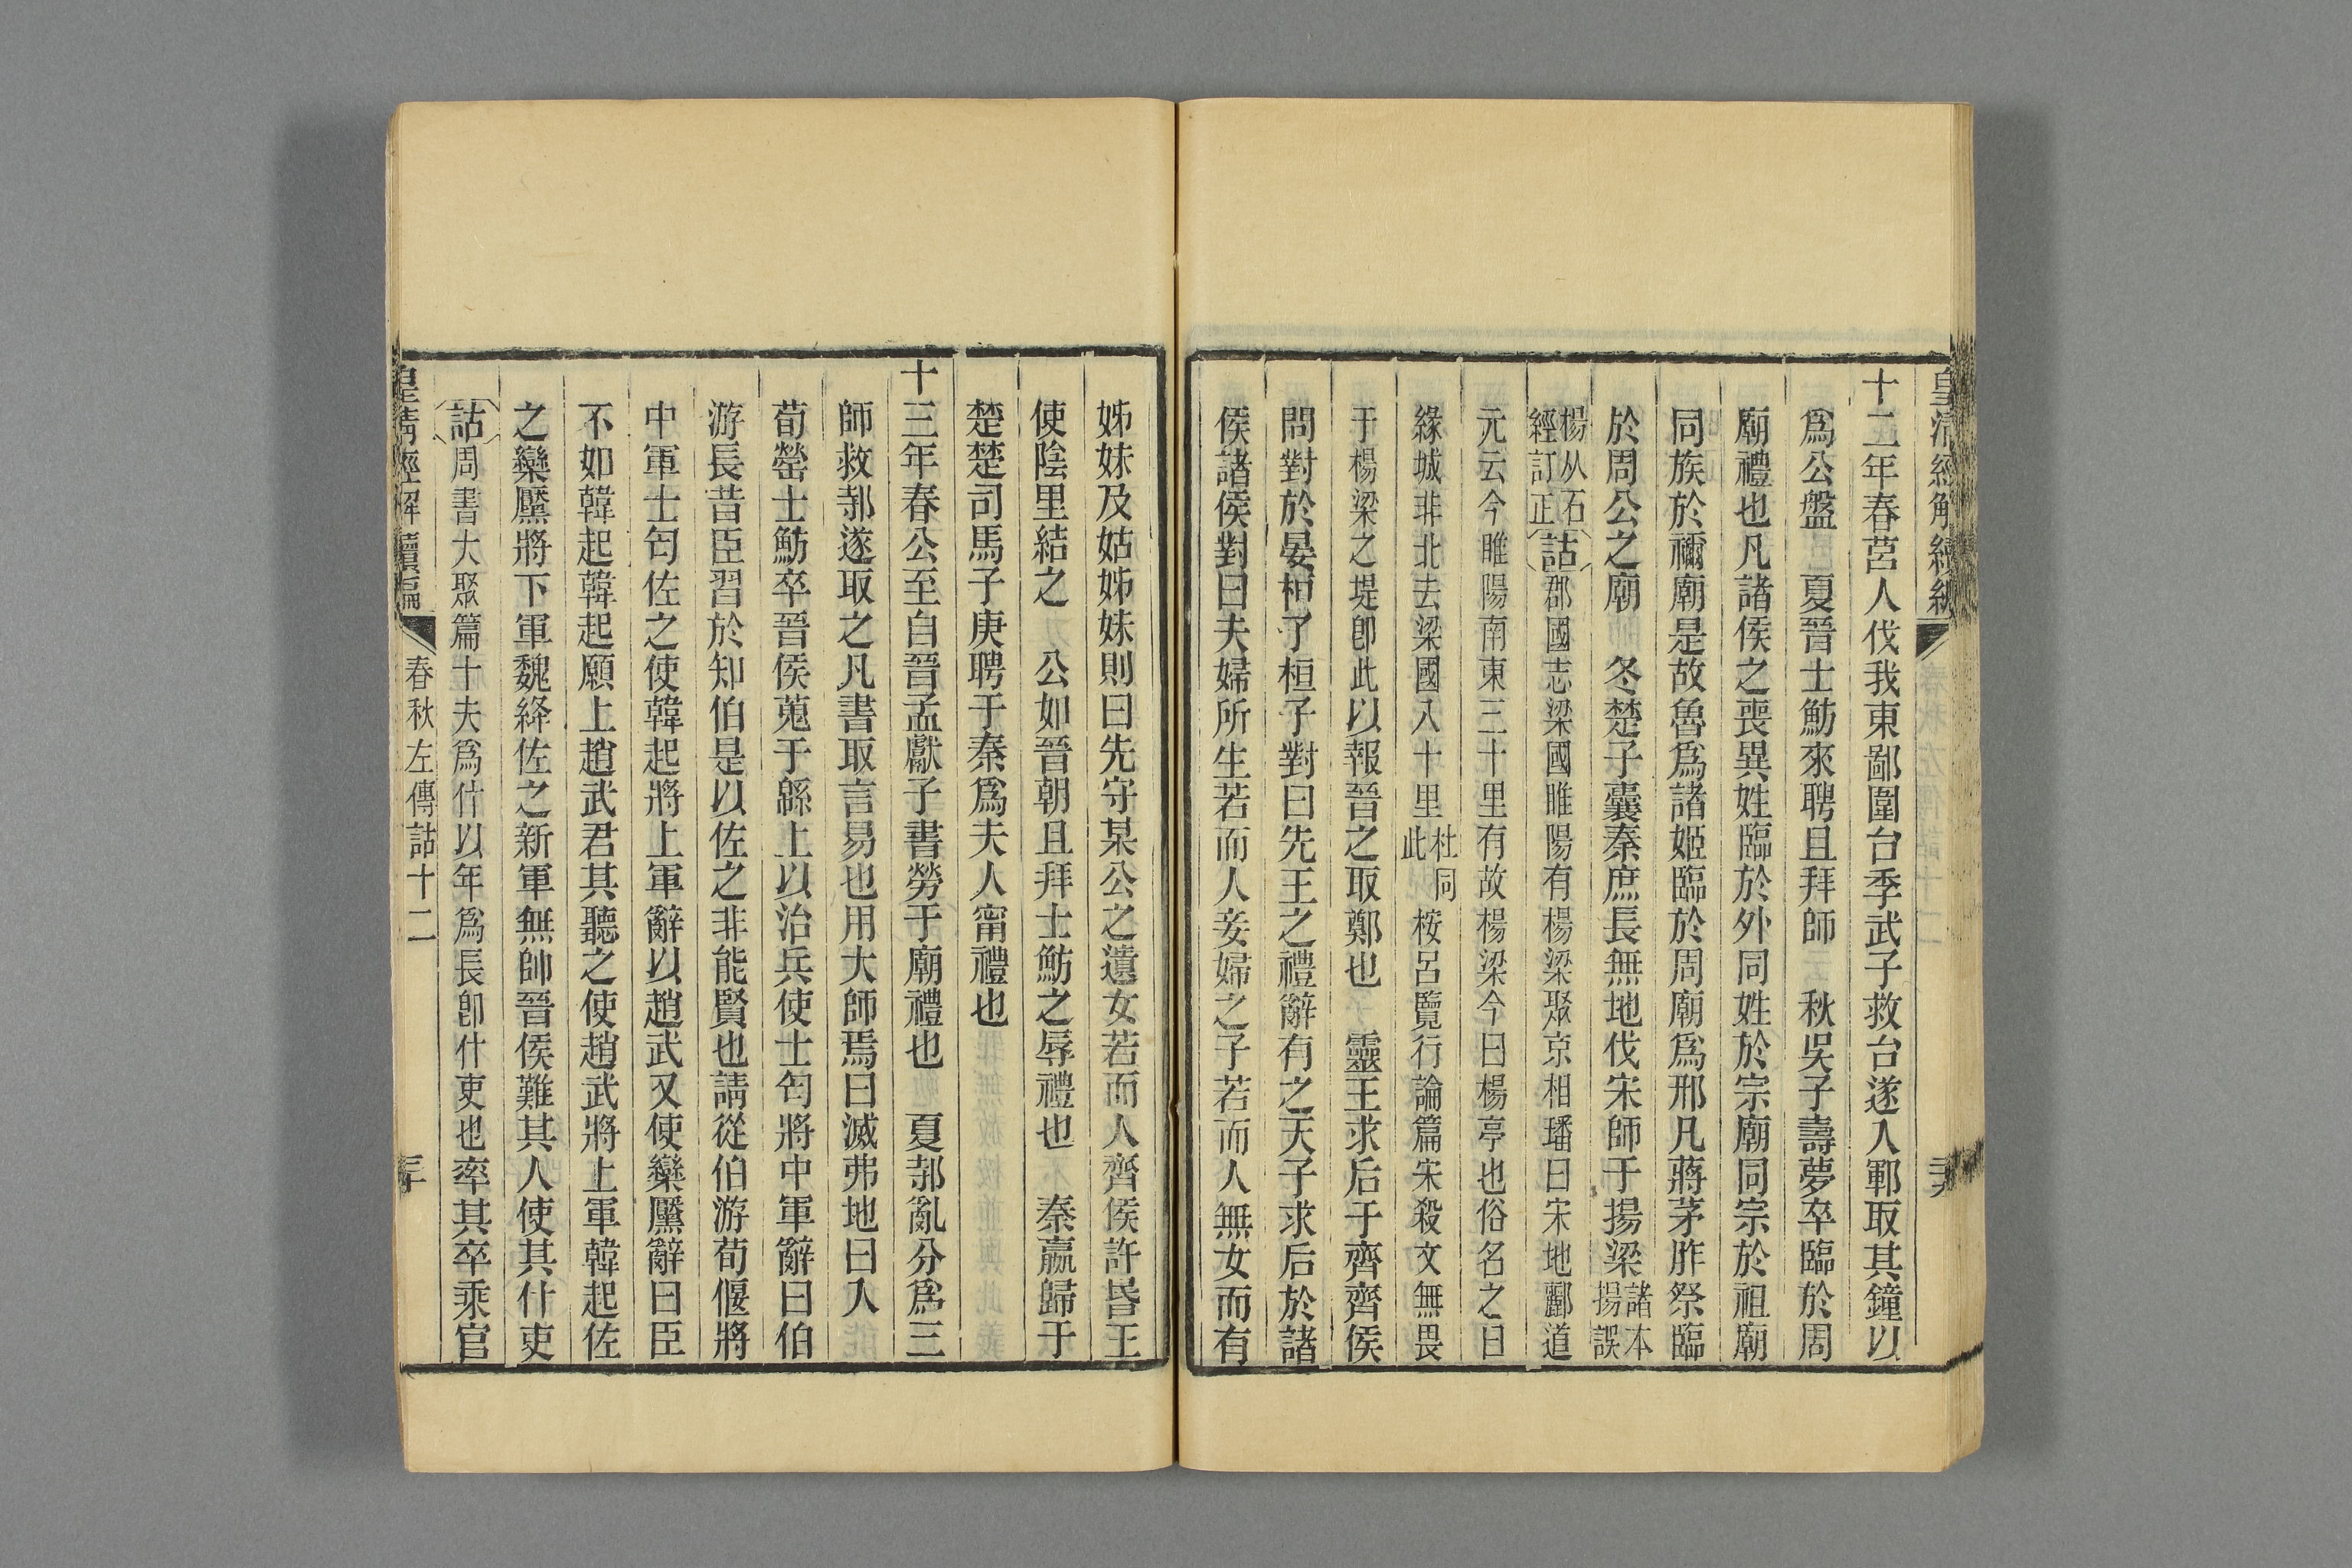 皇清經解續編
十二年春莒人伐我東鄙圍台季武子救台遂入鄆取其鐘以
爲公盤　夏晉士魴來聘且拜師　秋吳子壽夢卒臨於周
廟禮也凡諸侯之喪異姓臨於外同姓於宗廟同宗於祖廟
同族於禰廟是故魯爲諸姬臨於周廟爲邢凡蔣茅胙祭臨
於周公之廟　冬楚子囊秦庶長無地伐宋師于揚梁諸本揚誤
楊从石經訂正詁郡國志梁國睢陽有楊梁聚京相璠曰宋地酈道
元云今睢陽南東三十里有故楊梁今曰楊亭也俗名之曰
緣城非北去梁國八十里杜同此桉呂覽行論篇宋殺文無畏
于楊梁之堤卽此以報晉之取鄭也　靈王求后于齊齊侯
問對於晏桓子桓子對曰先王之禮辭有之天子求后於諸
侯諸侯對曰夫婦所生若而人妾婦之子若而人無女而有
姊妹及姑姊妹則曰先守某公之遺女若而人齊侯許昏王
使陰里結之　公如晉朝且拜士魴之辱禮也　秦嬴歸于
楚楚司馬子庚聘于秦爲夫人甯禮也
十三年春公至自晉孟獻子書勞于廟禮也　夏邿亂分爲三
師救邿遂取之凡書取言易也用大師焉曰滅弗地曰入
荀罃士魴卒晉侯蒐于緜上以治兵使士匄將中軍辭曰伯
游長昔臣習於知伯是以佐之非能賢也請從伯游荀偃將
中軍士匄佐之使韓起將上軍辭以趙武又使欒黶辭曰臣
不如韓起韓起願上趙武君其聽之使趙武將上軍韓起佐
之欒黶將下軍魏絳佐之新軍無帥晉侯難其人使其什吏
詁周書大聚篇十夫爲什以年爲長卽什吏也率其卒乘官
皇清經解續編　春秋左傳詁十二　三十